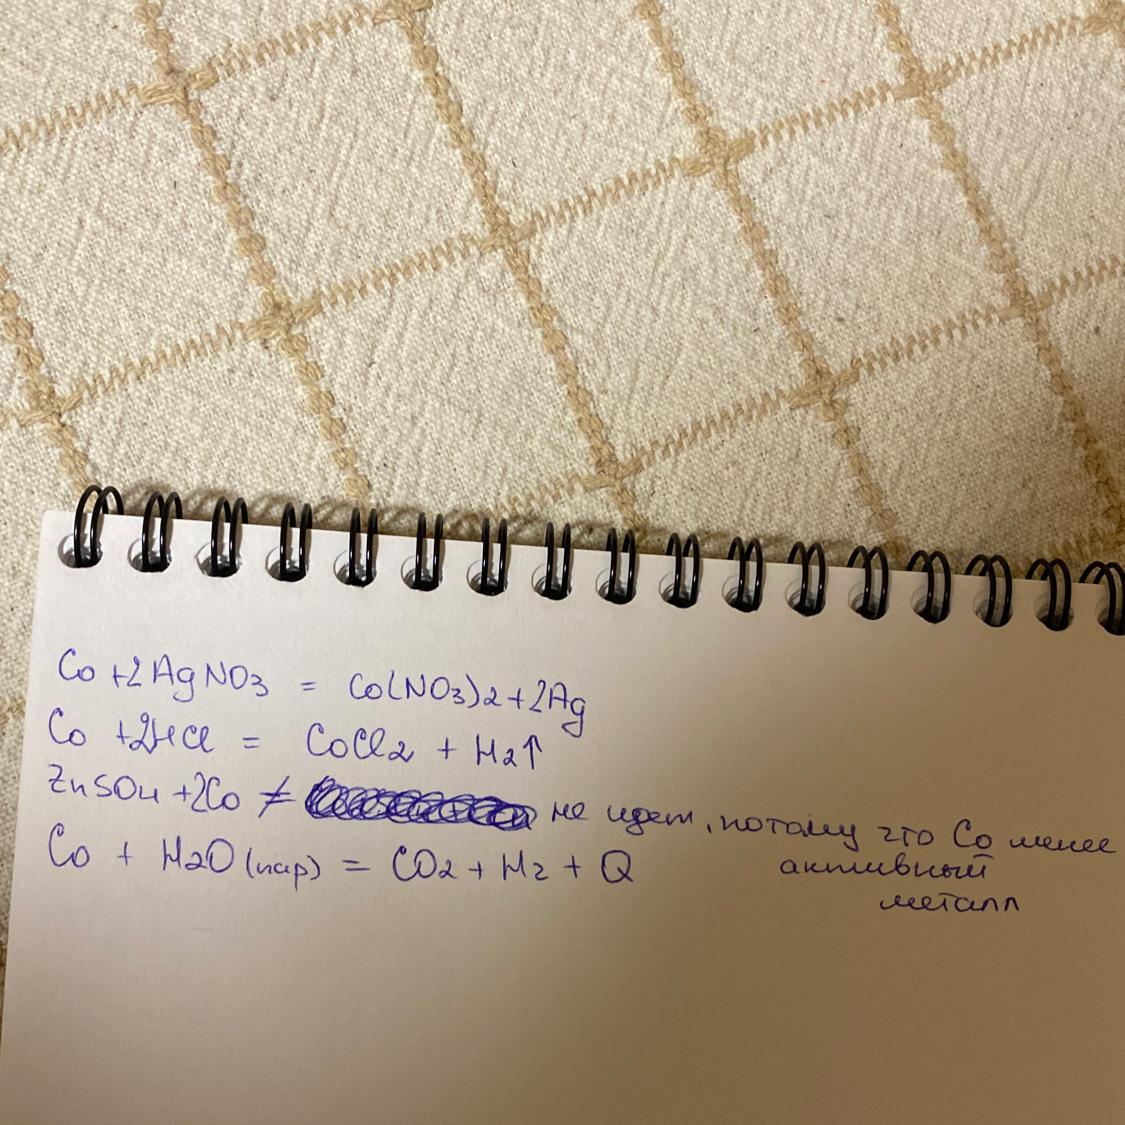 Co +2AgNO3 = Co(NO3)2+2Ag
Co +2HCl = CoCl2 + H2↑
ZnSO4 +2Co ≠ не идет, потому что Co менее
активный
металл
Co + H2O (пар) = CO2 + H2 + Q